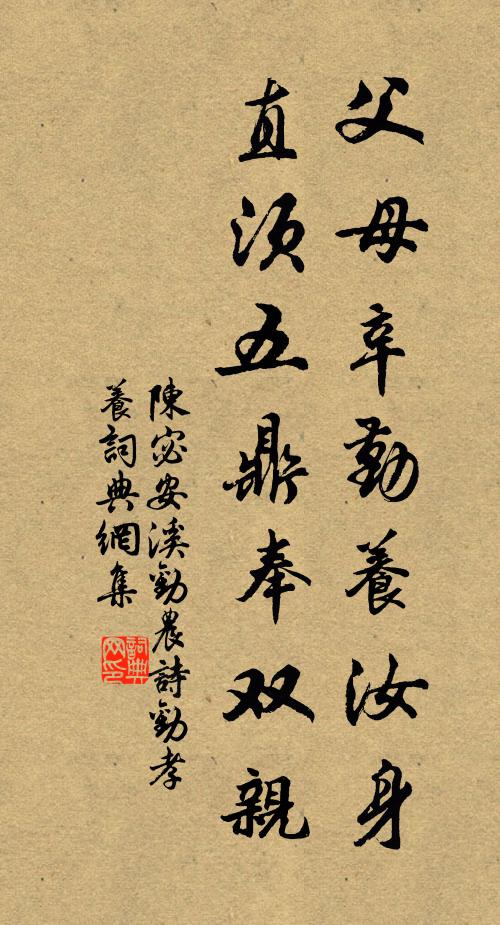 父母辛勤養汝身
直須五鼎奉双親
陳宓安溪勸農詩勸孝
養詞典網集
詞典网印